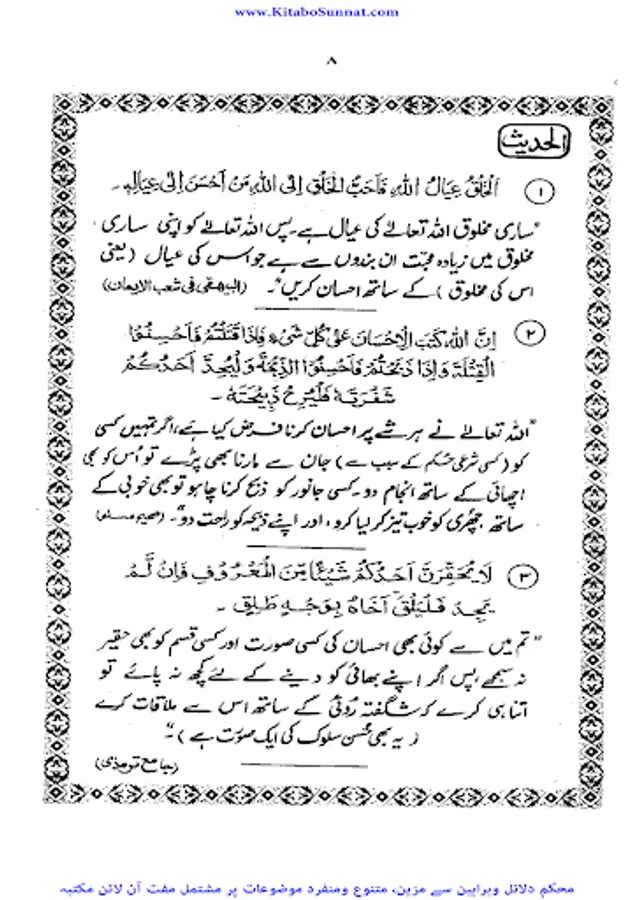 www.KitaboSunnat.com
۸
الحدیث
① اَلْخَلْقُ عِيَالُ اللّٰهِ فَاَحَبُّ الْخَلْقِ اِلَى اللّٰهِ مَنْ اَحْسَنَ اِلٰى عِيَالِهٖ۔
"ساری مخلوق اللہ تعالےٰ کی عیال ہے۔ پس اللہ تعالےٰ کو اپنی ساری
مخلوق میں زیادہ محبت ان بندوں سے ہے جو اس کی عیال (یعنی
اس کی مخلوق) کے ساتھ احسان کریں"۔ (البیہقی فی شعب الایمان)
② اِنَّ اللّٰهَ كَتَبَ الْاِحْسَانَ عَلٰى كُلِّ شَىْءٍ فَاِذَا قَتَلْتُمْ فَاَحْسِنُوا
الْقِتْلَةَ وَاِذَا ذَبَحْتُمْ فَاَحْسِنُوا الذِّبْحَةَ وَلْيُحِدَّ اَحَدُكُمْ
شَفْرَتَهٗ فَلْيُرِحْ ذَبِيْحَتَهٗ۔
"اللہ تعالےٰ نے ہر شے پر احسان کرنا فرض کیا ہے، اگر تمہیں کسی
کو (کسی شرعی حکم کے سبب سے) جان سے مارنا بھی پڑے تو اُس کو بھی
اچھائی کے ساتھ انجام دو۔ کسی جانور کو ذبح کرنا چاہو تو بھی خوبی کے
ساتھ، چھُری کو خوب تیز کر لیا کرو، اور اپنے ذبیحہ کو راحت دو"۔ (صحیح مسلم)
③ لَا يَحْقِرَنَّ اَحَدُكُمْ شَيْئًا مِّنَ الْمَعْرُوْفِ فَاِنْ لَّمْ
يَجِدْ فَلْيَلْقَ اَخَاهُ بِوَجْهٍ طَلِيْقٍ۔
"تم میں سے کوئی بھی احسان کی کسی صورت اور کسی قسم کو بھی حقیر
نہ سمجھے، پس اگر اپنے بھائی کو دینے کے لئے کچھ نہ پائے تو
اتنا ہی کرے کہ شگفتہ رُوئی کے ساتھ اس سے ملاقات کرے
(یہ بھی حُسنِ سلوک کی ایک صورت ہے)"۔
(جامع ترمذی)
محکم دلائل وبراہین سے مزین، متنوع ومنفرد موضوعات پر مشتمل مفت آن لائن مکتبہ